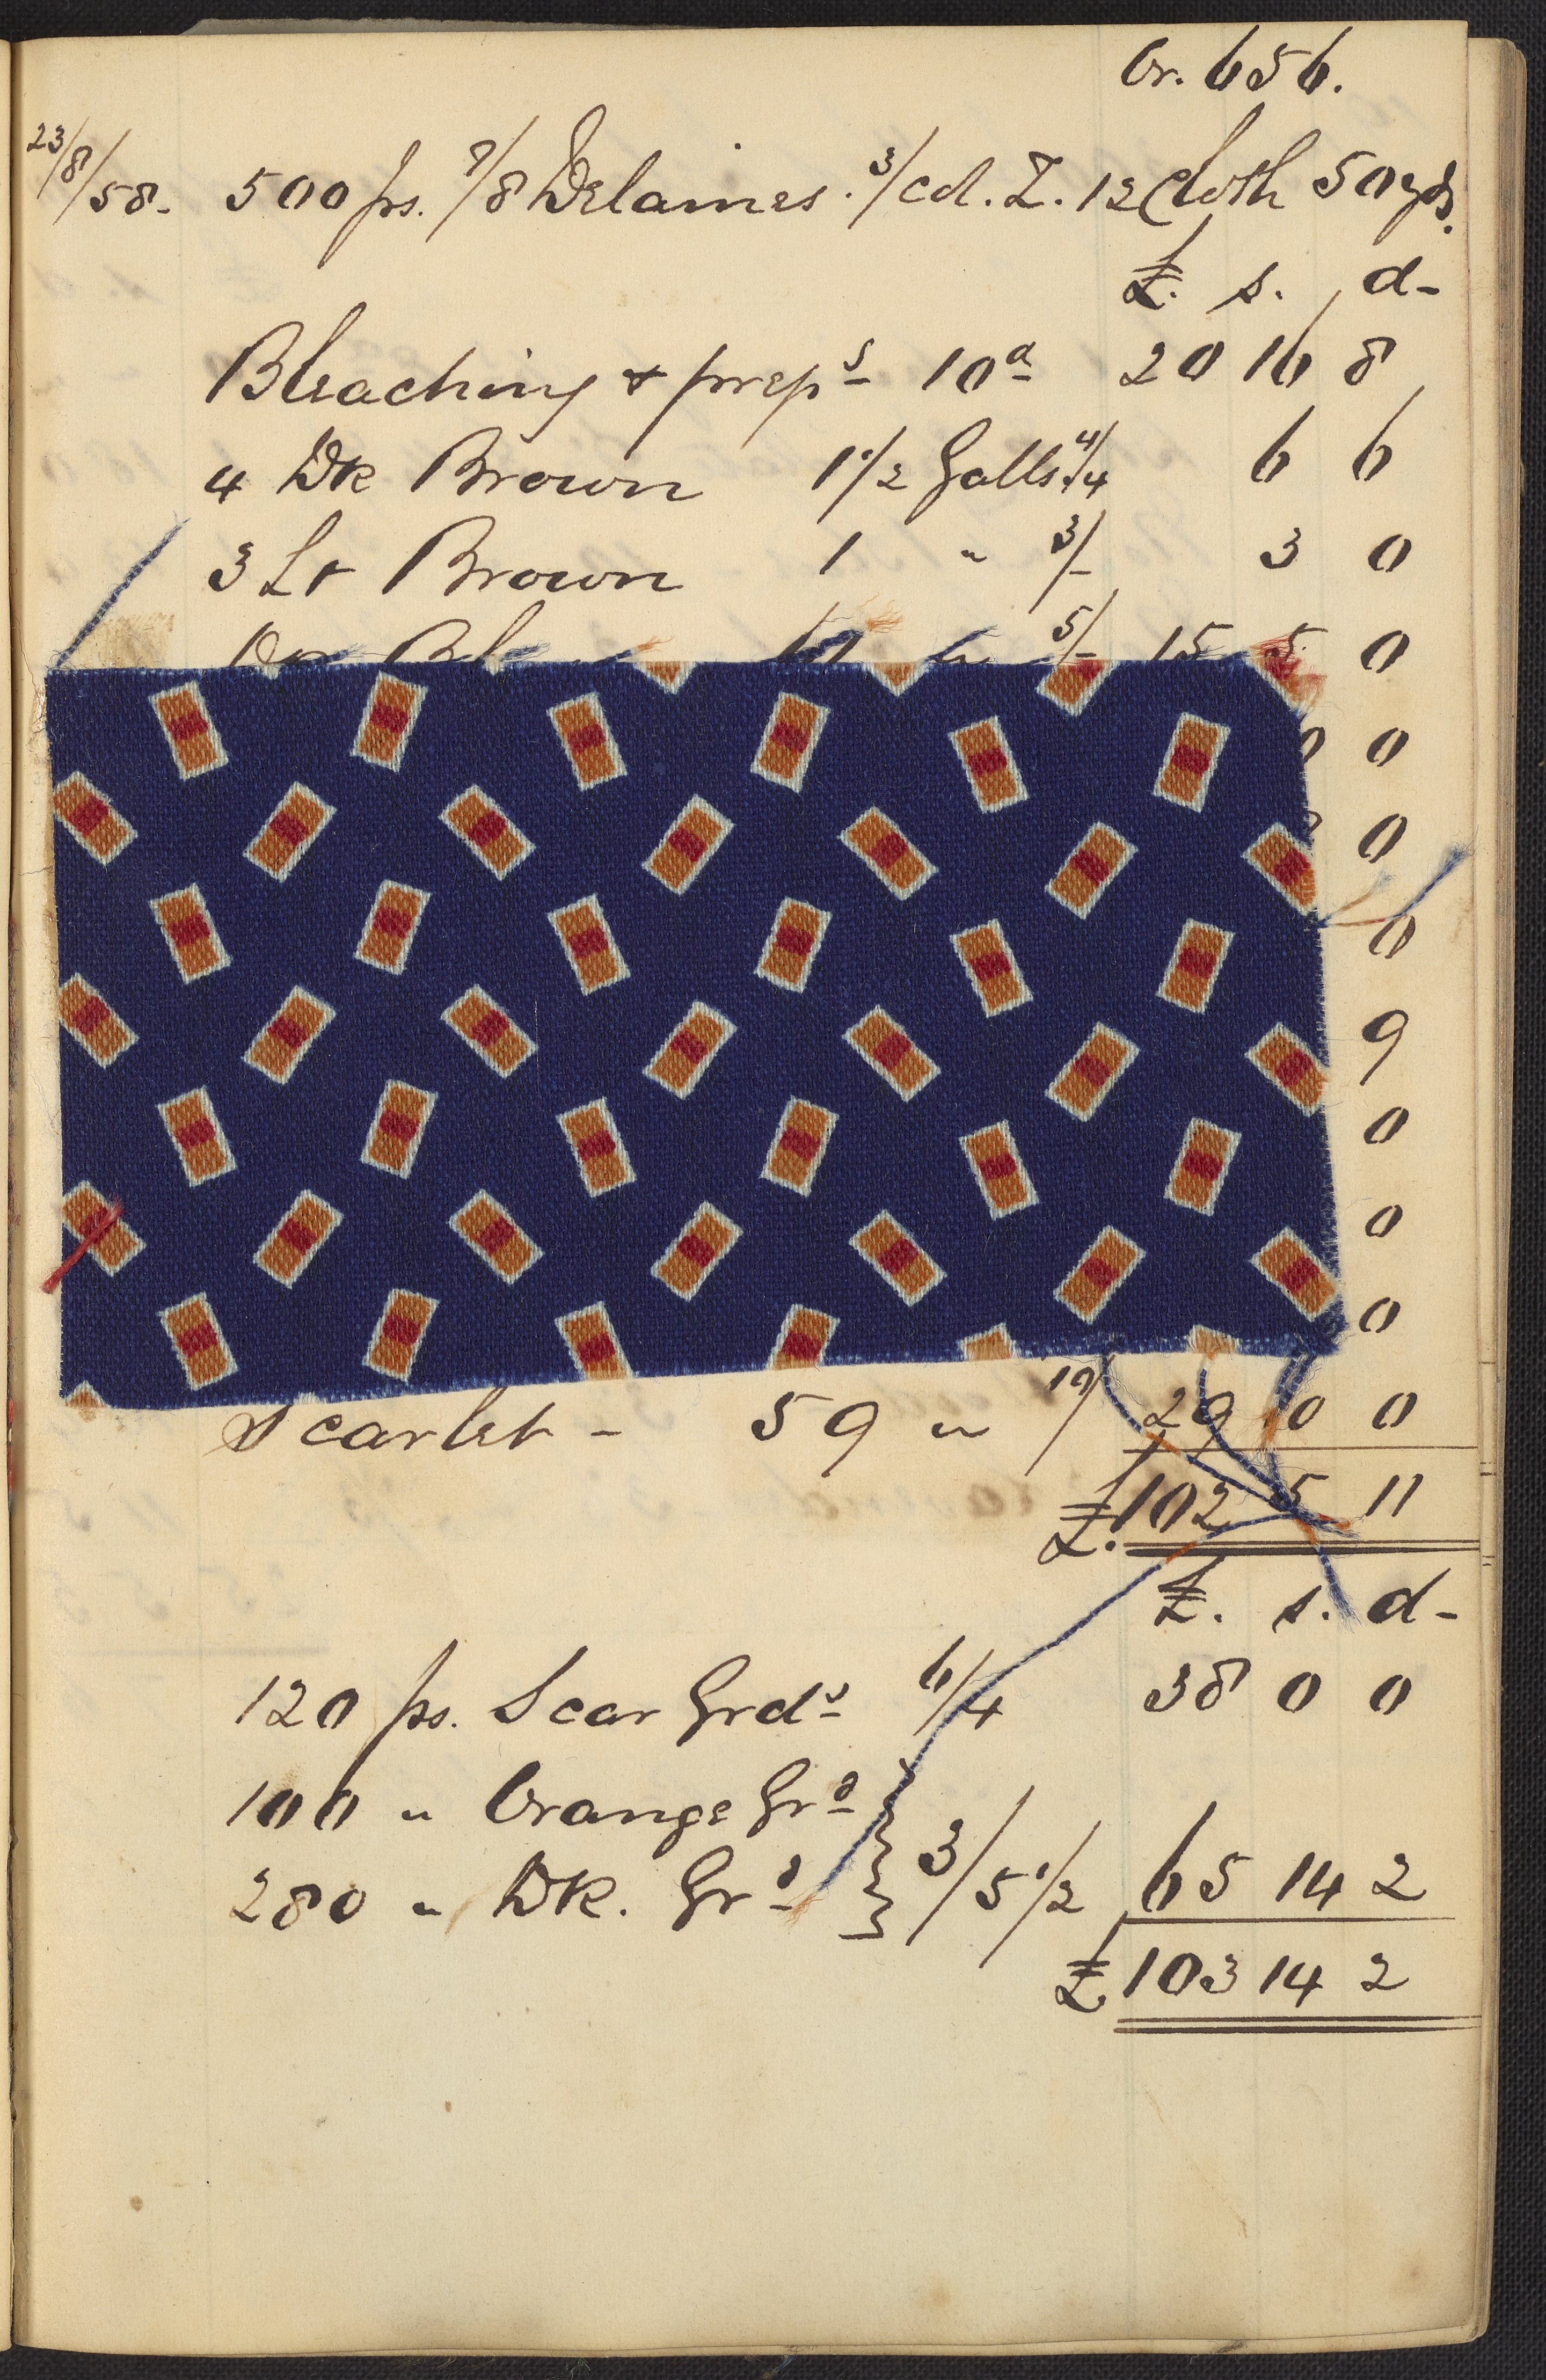 Or. 656.
23/8/58. 500 ps. 7/8 Delaines. 3/col. Z. 12 Cloth 50 yds.
£. s. d-
Bleaching & prepg 10d 20 16 8
4 Dk Brown 1 1/2 Galls. 4/4 6 6
3 Lt Brown 1 " 3/- 3 0
" 5/- 15 5 0
0
0
0
9
0
0
0
Scarlet - 59 " 29 0 0
£102 5 11
£. s. d-
120 ps. Scar Grds 6/4 38 0 0
100 " Orange Grd
280 " Dk. Grd } 3/5 1/2 65 14 2
£103 14 2